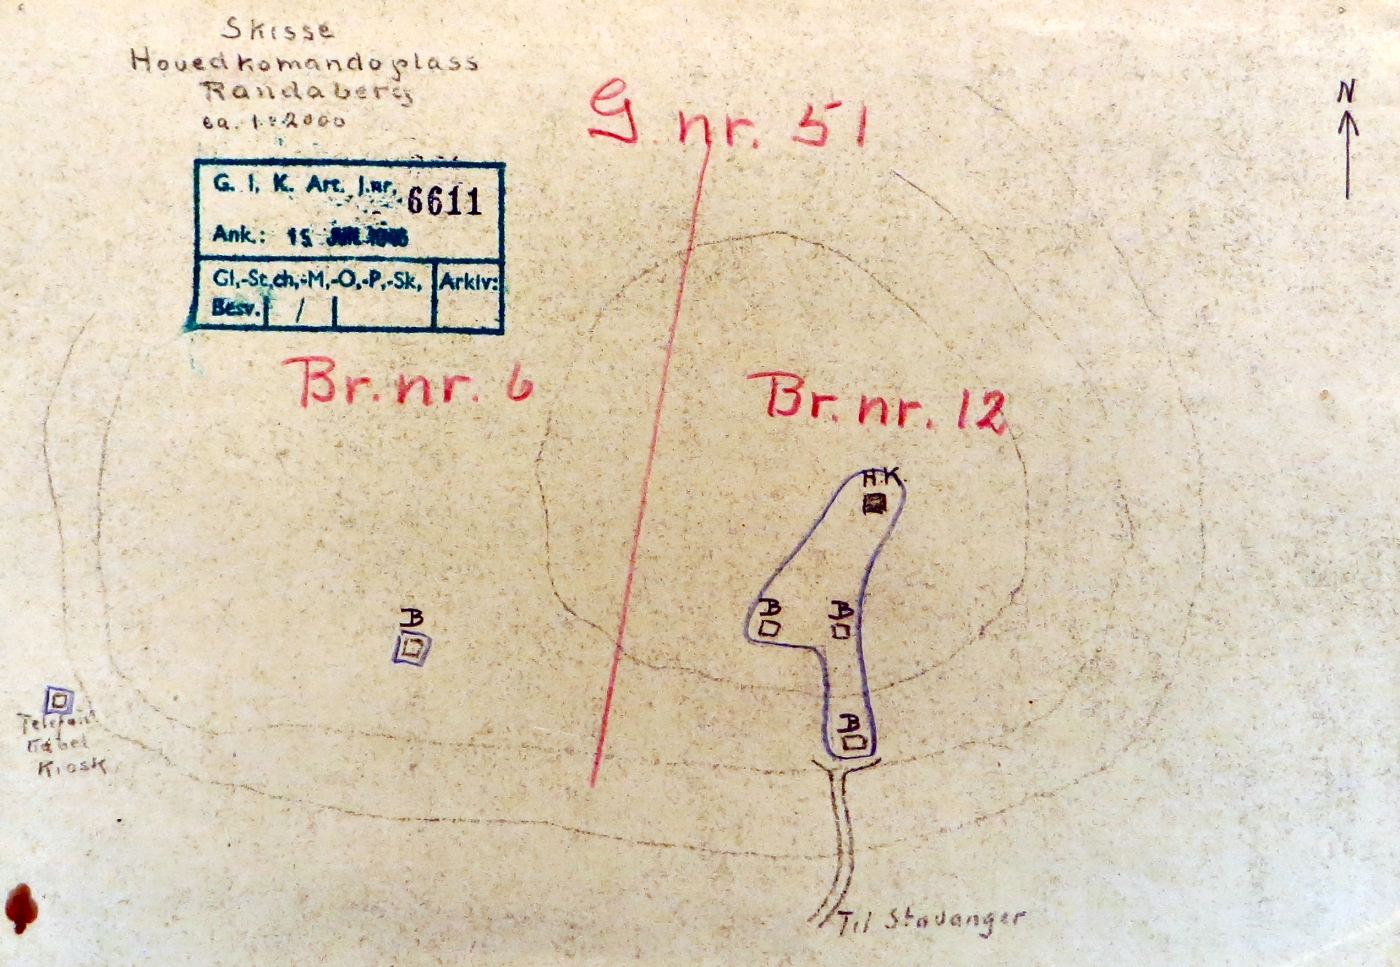 Skisse
Hovedkomandoplass
Randaberg
ca. 1:2000
G. nr. 51
N
G. I. K. Art. J.nr. 6611
Ank.: 15
Gl,-St,ch,-M,-O,-P,-Sk, Arkiv:
Besv. /
Br. nr. 6
Br. nr. 12
H.K.
B
B
B
B
Kabel
Kiosk
Til Stavanger